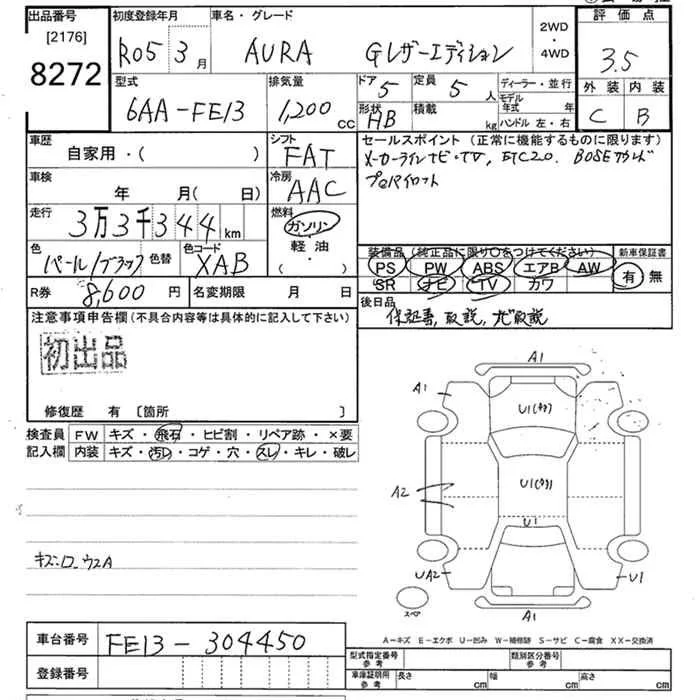 出品番号 初度登録年月 車名・グレード 2WD・4WD 評価点
[2176]
8272 R05 3月 AURA Gレザーエディション 3.5
型式 排気量 ドア 5 定員 5人 ディーラー・並行 外装 内装
6AA-FE13 1,200cc 形状 HB 積載 kg モデル年式 年 C B
ハンドル 左・右
車歴 シフト セールスポイント (正常に機能するものに限ります)
自家用・( ) FAT メーカーラインナビ・TV, ETC2.0, BOSEサウンド
車検 冷房 プロパイロット
年 月(日) AAC
走行 燃料
3万3千344km ガソリン
軽油
・( )
色 色替 色コード 装備品 (純正品に限り○をつけてください) 新車保証書
パール/ブラック XAB PS PW ABS エアB AW 有 無
SR ナビ TV カワ
R券 8,600円 名変期限 月 日 後日品
保証書, 取説, ナビ取説
注意事項申告欄 (不具合内容等は具体的に記入して下さい)
初出品
修復歴 有 [箇所 ]
検査員 FW キズ・飛石・ヒビ割・リペア跡・×要
記入欄 内装 キズ・汚レ・コゲ・穴・スレ・キレ・破レ
A1
A1
U1
A2
U1
U1
UA2
U1
スペア
A1
A-キズ E-エクボ U-凹み W-補修跡 S-サビ C-腐食 XX-交換済
車台番号 FE13-304450
型式指定番号 参考 類別区分番号 参考
登録番号
車庫証明用 参考 長さ cm 幅 cm 高さ cm